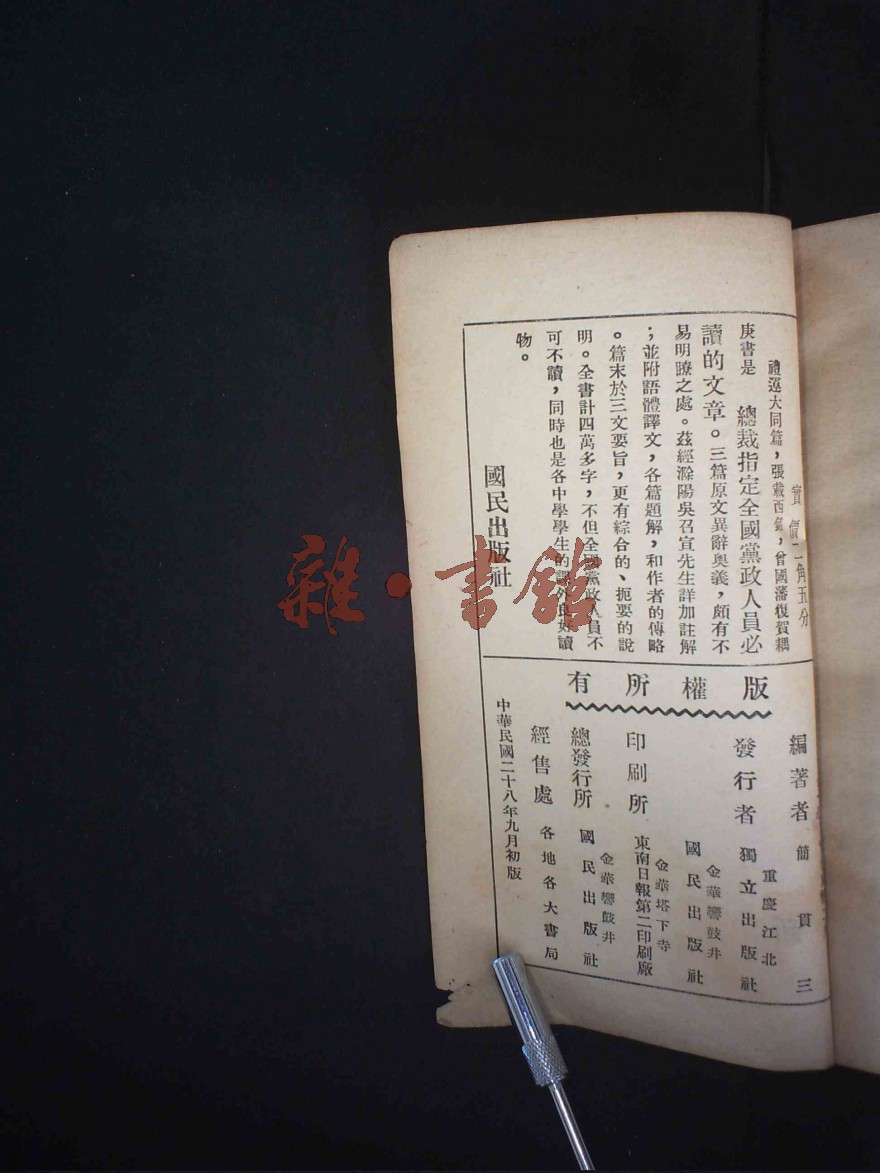 實價二角五分
禮運大同篇，張載西銘，曾國藩復賀耦
庚書是　總裁指定全國黨政人員必
讀的文章。三篇原文異辭奧義，頗有不
易明瞭之處。茲經滁陽吳召宣先生詳加註解
；並附語體譯文，各篇題解，和作者的傳略
。篇末於三文要旨，更有綜合的、扼要的說
明。全書計四萬多字，不但全國黨政人員不
可不讀，同時也是各中學學生的課外良好讀
物。
國民出版社
版權所有
編著者　簡貫三
重慶江北
發行者　獨立出版社
金華響鼓井
國民出版社
金華塔下寺
印刷所　東南日報第二印刷廠
金華響鼓井
總發行所　國民出版社
經售處　各地各大書局
中華民國二十八年九月初版
雜·書館